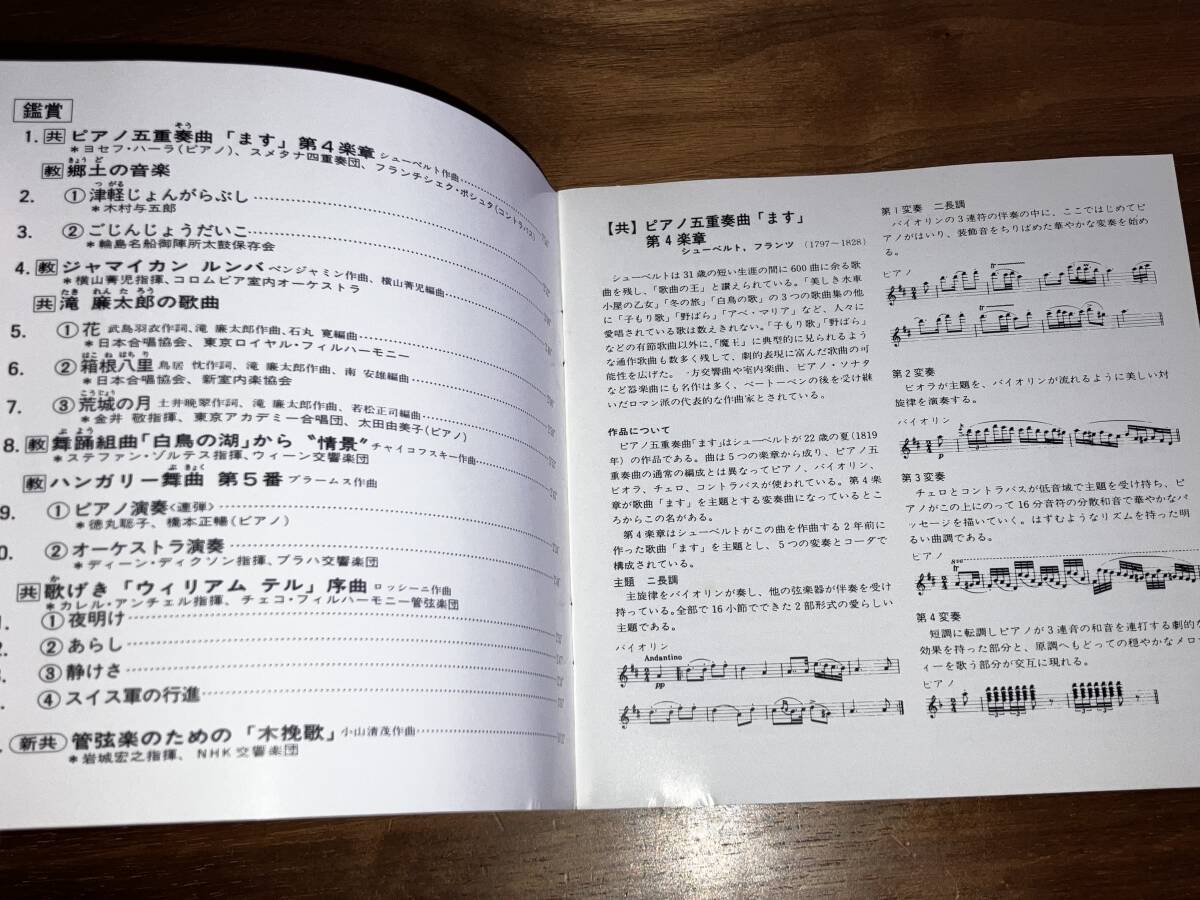 鑑賞
1. 共 ピアノ五重奏曲「ます」第4楽章 シューベルト作曲
*ヨセフ・ハーラ(ピアノ)、スメタナ四重奏団、フランチシェク・ポシュタ(コントラバス)
教 郷土の音楽
2. ①津軽じょんがらぶし
*木村与五郎
3. ②ごじんじょうだいこ
*輪島名船御陣所太鼓保存会
4. 教 ジャマイカン ルンバ ベンジャミン作曲、横山菁児編曲
*横山菁児指揮、コロムビア室内オーケストラ
共 滝 廉太郎の歌曲
5. ①花 武島羽衣作詞、滝 廉太郎作曲、石丸 寛編曲
*日本合唱協会、東京ロイヤル・フィルハーモニー
6. ②箱根八里 鳥居 忱作詞、滝 廉太郎作曲、南 安雄編曲
*日本合唱協会、新室内楽協会
7. ③荒城の月 土井晩翠作詞、滝 廉太郎作曲、若松正司編曲
*金井 敬指揮、東京アカデミー合唱団、太田由美子(ピアノ)
8. 教 舞踊組曲「白鳥の湖」から〝情景〟チャイコフスキー作曲
*ステファン・ゾルテス指揮、ウィーン交響楽団
教 ハンガリー舞曲 第5番 ブラームス作曲
9. ①ピアノ演奏<連弾>
*徳丸聡子、橋本正暢(ピアノ)
0. ②オーケストラ演奏
*ディーン・ディクソン指揮、プラハ交響楽団
共 歌げき「ウィリアム テル」序曲 ロッシーニ作曲
*カレル・アンチェル指揮、チェコ・フィルハーモニー管弦楽団
1. ①夜明け
2. ②あらし
3. ③静けさ
④スイス軍の行進
新共 管弦楽のための「木挽歌」小山清茂作曲
*岩城宏之指揮、NHK交響楽団
【共】ピアノ五重奏曲「ます」
第4楽章
シューベルト、フランツ (1797〜1828)
シューベルトは31歳の短い生涯の間に600曲に余る歌
曲を残し、「歌曲の王」と讃えられている。「美しき水車
小屋の乙女」「冬の旅」「白鳥の歌」の3つの歌曲集の他
に「子もり歌」「野ばら」「アベ・マリア」など、人々に
愛唱されている歌は数えきれない。「子もり歌」「野ばら」
などの有節歌曲以外に、「魔王」に典型的に見られるよう
な通作歌曲も数多く残して、劇的表現に富んだ歌曲の可
能性を広げた。 方交響曲や室内楽曲、ピアノ・ソナタ
など器楽曲にも名作は多く、ベートーベンの後を受け継
いだロマン派の代表的な作曲家とされている。
作品について
ピアノ五重奏曲「ます」はシューベルトが22歳の夏(1819
年)の作品である。曲は5つの楽章から成り、ピアノ五
重奏曲の通常の編成とは異なってピアノ、バイオリン、
ビオラ、チェロ、コントラバスが使われている。第4楽
章が歌曲「ます」を主題とする変奏曲になっているとこ
ろからこの名がある。
第4楽章はシューベルトがこの曲を作曲する2年前に
作った歌曲「ます」を主題とし、5つの変奏とコーダで
構成されている。
主題 ニ長調
主旋律をバイオリンが奏し、他の弦楽器が伴奏を受け
持っている。全部で16小節でできた2部形式の愛らしい
主題である。
バイオリン
Andantino
pp
第1変奏 ニ長調
バイオリンの3連符の伴奏の中に、ここではじめてピ
アノがはいり、装飾音をちりばめた華やかな変奏を始め
る。
ピアノ
tr
tr
第2変奏
ビオラが主題を、バイオリンが流れるように美しい対
旋律を演奏する。
バイオリン
p
第3変奏
チェロとコントラバスが低音域で主題を受け持ち、ピ
アノがこの上にのって16分音符の分散和音で華やかなパ
ッセージを描いていく。はずむようなリズムを持った明
るい曲調である。
ピアノ
8va
tr
第4変奏
短調に転調しピアノが3連音の和音を連打する劇的な
効果を持った部分と、原調へもどっての穏やかなメロ
ィーを歌う部分が交互に現れる。
ピアノ